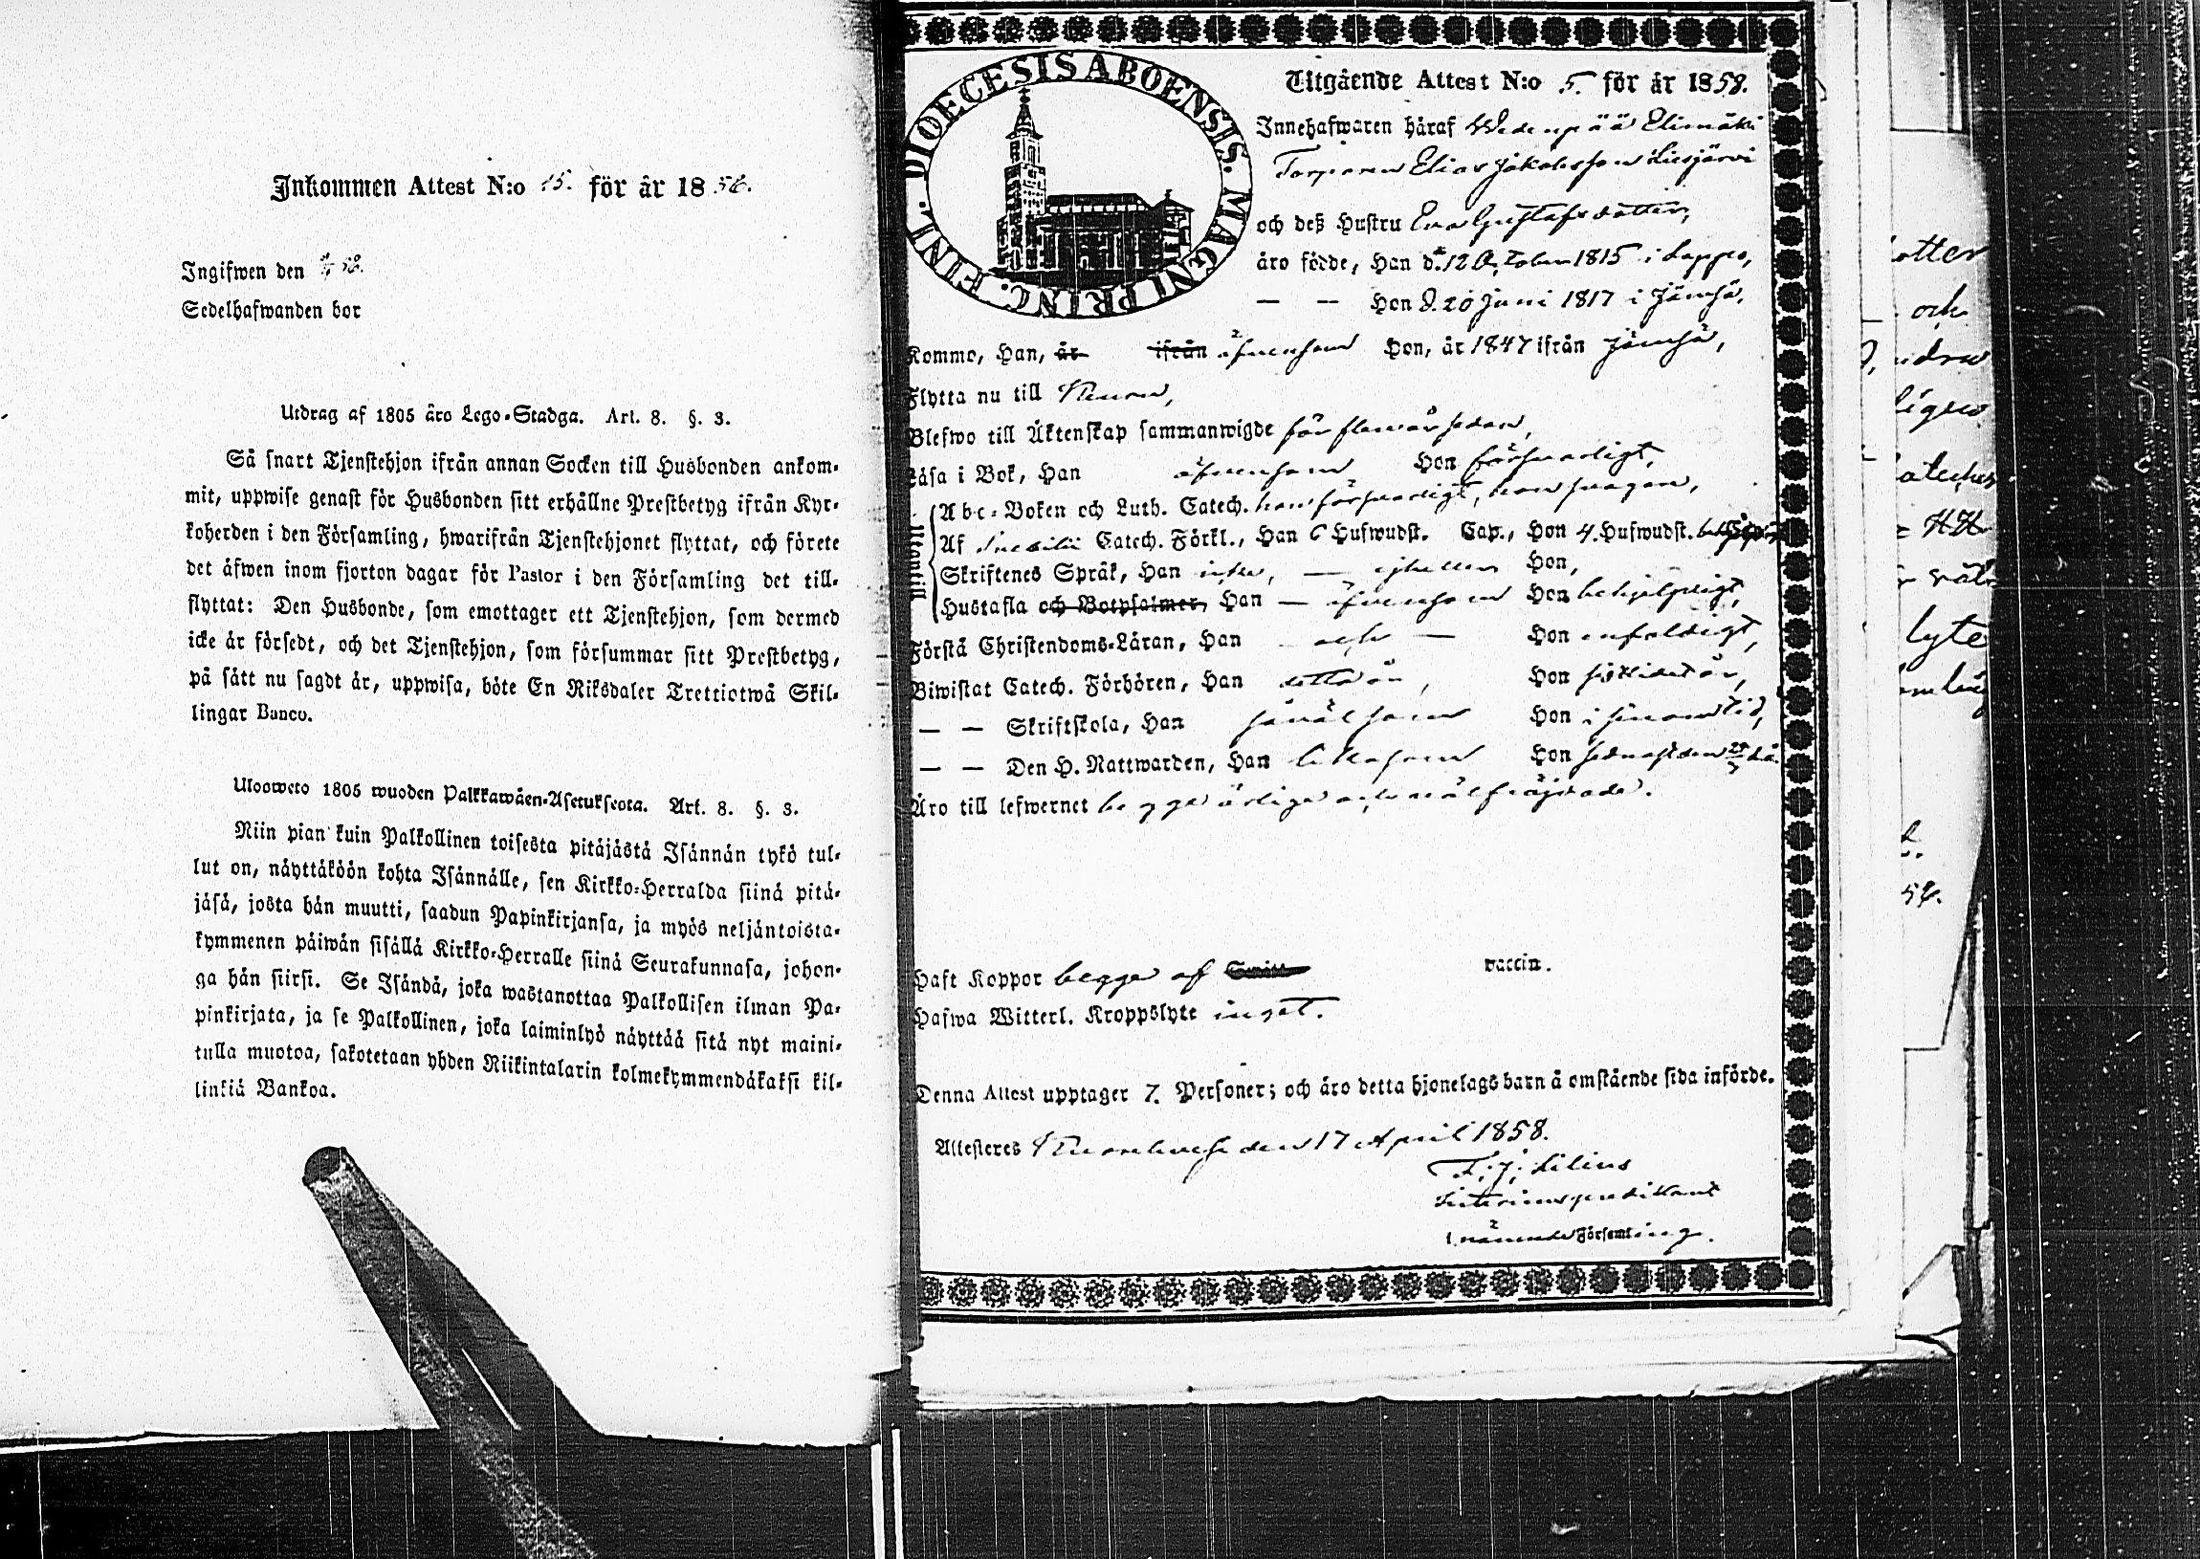 Inkommen Attest N:o 15. för år 1856.
Ingifwen den
Sedelhafwanden bor
Utdrag af 1805 åro Lego-Stadga. Art. 8. §. 3.
Så snart Tjenstehjon ifrån annan Socken till Husbonden ankom-
mit, uppwise genast för Husbonden sitt erhållne Prestbetyg ifrån Kyr-
koherden i den Församling, hwarifrån Tjenstehjonet flyttat, och förete
det åfwen inom fjorton dagar för Pastor i den Församling det till-
flyttat: Den Husbonde, som emottager ett Tjenstehjon, som dermed
icke är försedt, och det Tjenstehjon, som försummar sitt Prestbetyg,
på sått nu sagdt är, uppwisa, böte En Riksdaler Trettiotwå Skil-
lingar Banco.
Uloosweto 1805 wuoden Palkkawäen-Asetuksesta. Art. 8. §. 3.
Niin pian kuin Palkollinen toisesta pitäjästä Isännän tykö tul-
lut on, näyttäköön kohta Isännälle, sen Kirkko-Herralda siinä pitä-
jäsä, josta hän muutti, saadun Papinkirjansa, ja myös neljäntoista-
kymmenen päiwän sisällä Kirkko-Herralle siinä Seurakunnasa, johon-
ga hän siirsi. Se Isändä, joka wastanottaa Palkollisen ilman Pa-
pinkirjata, ja se Palkollinen, joka laiminlyö näyttää sitä nyt maini-
tulla muotoa, sakotetaan yhden Riikintalarin kolmekymmendäkaksi kil-
linkiä Bankoa.
DIOECESIS ABOENSIS. MAGNI PRINC. FINL.
Utgående Attest N:o 5. för år 1858.
Innehafwaren håraf Wedenpää Elimäki
Torparen Elias Jakobsson Liesjärvi
och deß Hustru Eva Gustafsdotter,
åro födde, Han d. 12 October 1815 i Lappo,
— — Hon d. 20 Juni 1817 i Jämsä,
Kommo, Han, år ifrån äfvensom Hon, år 1847 ifrån Jämsä,
Flytta nu till Keuru,
Blefwo till Åktenskap sammanwigde för flera år sedan,
Låsa i Bok, Han äfvensom Hon försvarligt,
Utantill
Abc-Boken och Luth. Catech. han försvarligt, hon svagare,
Af Svebilii Catech. Förkl., Han 6 Hufwudst. Cap., Hon 4. Hufwudst.
Skriftenes Språk, Han icke, — ej heller Hon,
Hustafla och Botpsalmer, Han — äfvensom Hon behjelpligt,
Förstå Christendoms-Låran, Han och — Hon enfaldigt,
Biwistat Catech. Förhören, Han detta år, Hon
— — Skriftskola, Han såväl som Hon i sinom tid,
— — Den H. Nattwarden, Han likasom Hon sednast den
Åro till lefwernet begge ärlige och välfräjdade.
Haft Koppor begge af vaccin.
Hafwa Witterl. Kroppslyte inget.
Denna Attest upptager 7. Personer; och åro detta hjonelags barn å omstående sida införde.
Attesteres den 17 April 1858.
F. J. Lilius
Interimspredikant
i nämnde Församling.